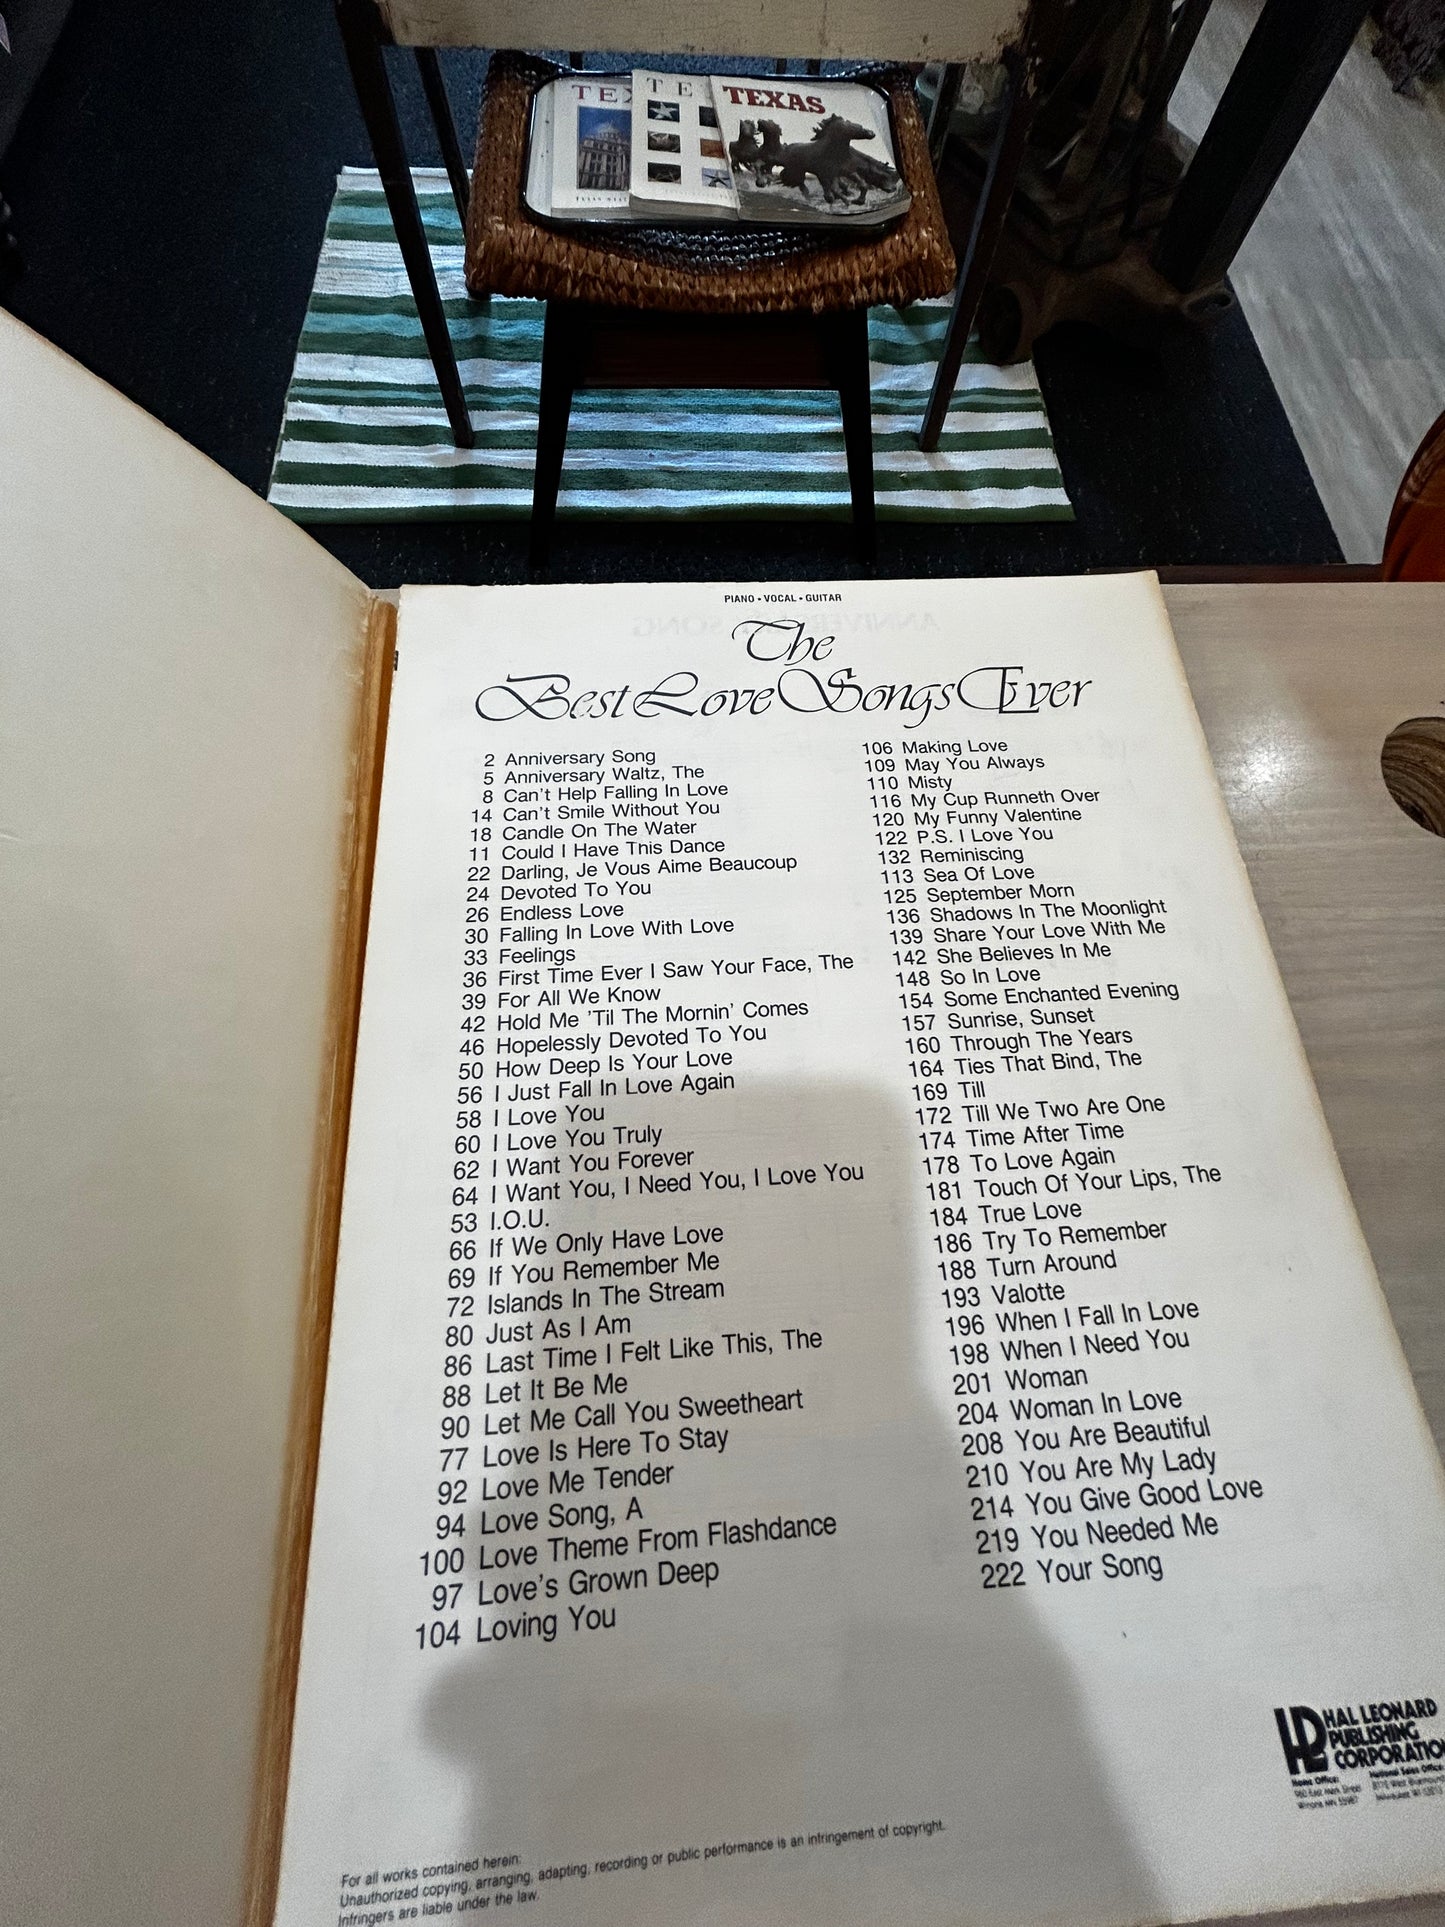 TEX
TE
TEXAS
PIANO • VOCAL • GUITAR
The
Best Love Songs Ever
2 Anniversary Song
5 Anniversary Waltz, The
8 Can't Help Falling In Love
14 Can't Smile Without You
18 Candle On The Water
11 Could I Have This Dance
22 Darling, Je Vous Aime Beaucoup
24 Devoted To You
26 Endless Love
30 Falling In Love With Love
33 Feelings
36 First Time Ever I Saw Your Face, The
39 For All We Know
42 Hold Me 'Til The Mornin' Comes
46 Hopelessly Devoted To You
50 How Deep Is Your Love
56 I Just Fall In Love Again
58 I Love You
60 I Love You Truly
62 I Want You Forever
64 I Want You, I Need You, I Love You
53 I.O.U.
66 If We Only Have Love
69 If You Remember Me
72 Islands In The Stream
80 Just As I Am
86 Last Time I Felt Like This, The
88 Let It Be Me
90 Let Me Call You Sweetheart
77 Love Is Here To Stay
92 Love Me Tender
94 Love Song, A
100 Love Theme From Flashdance
97 Love's Grown Deep
104 Loving You
106 Making Love
109 May You Always
110 Misty
116 My Cup Runneth Over
120 My Funny Valentine
122 P.S. I Love You
132 Reminiscing
113 Sea Of Love
125 September Morn
136 Shadows In The Moonlight
139 Share Your Love With Me
142 She Believes In Me
148 So In Love
154 Some Enchanted Evening
157 Sunrise, Sunset
160 Through The Years
164 Ties That Bind, The
169 Till
172 Till We Two Are One
174 Time After Time
178 To Love Again
181 Touch Of Your Lips, The
184 True Love
186 Try To Remember
188 Turn Around
193 Valotte
196 When I Fall In Love
198 When I Need You
201 Woman
204 Woman In Love
208 You Are Beautiful
210 You Are My Lady
214 You Give Good Love
219 You Needed Me
222 Your Song
HAL LEONARD
PUBLISHING
CORPORATIO
Home Office:
National Sales Office:
For all works contained herein:
Unauthorized copying, arranging, adapting, recording or public performance is an infringement of copyright.
Infringers are liable under the law.